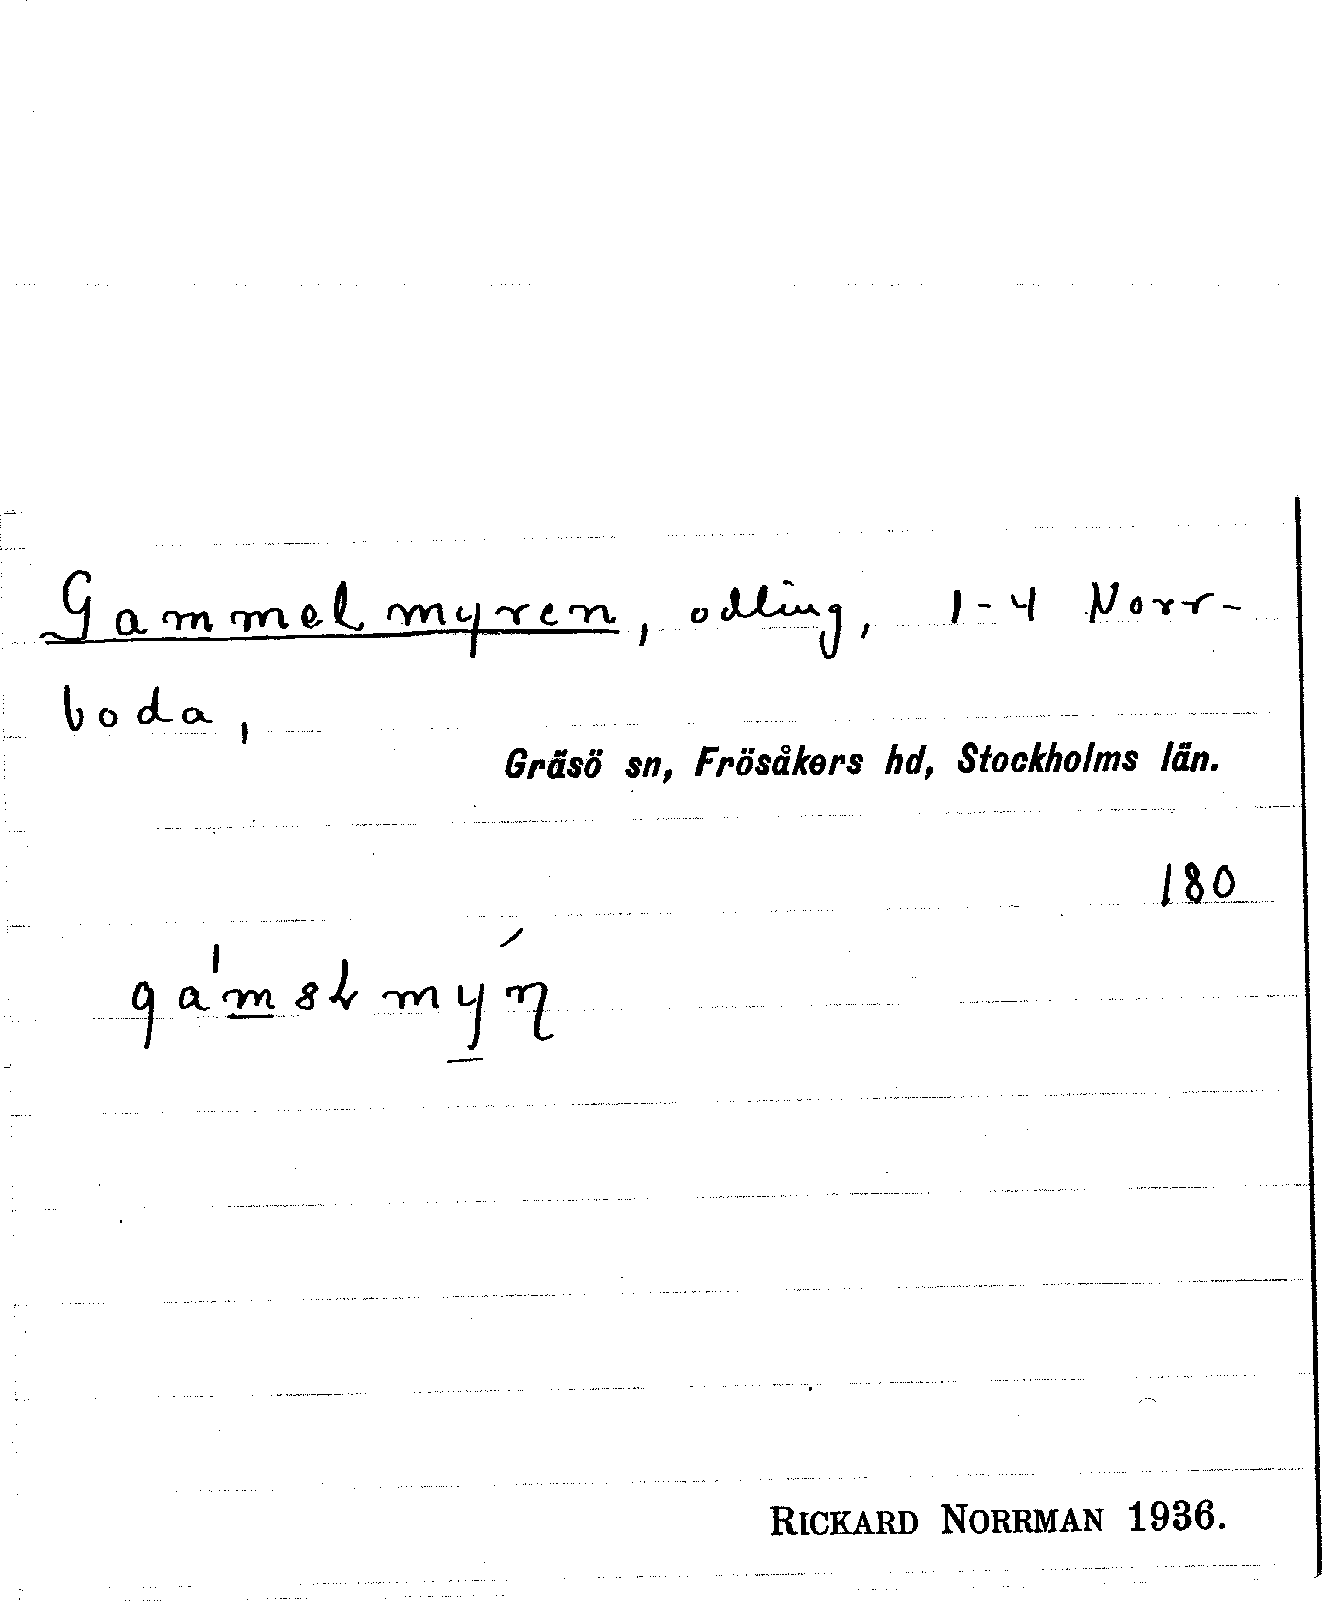 Gammelmyren, odling, 1-4 Norr-
boda,
Gräsö sn, Frösåkers hd, Stockholms län.
180
RICKARD NORRMAN 1936.